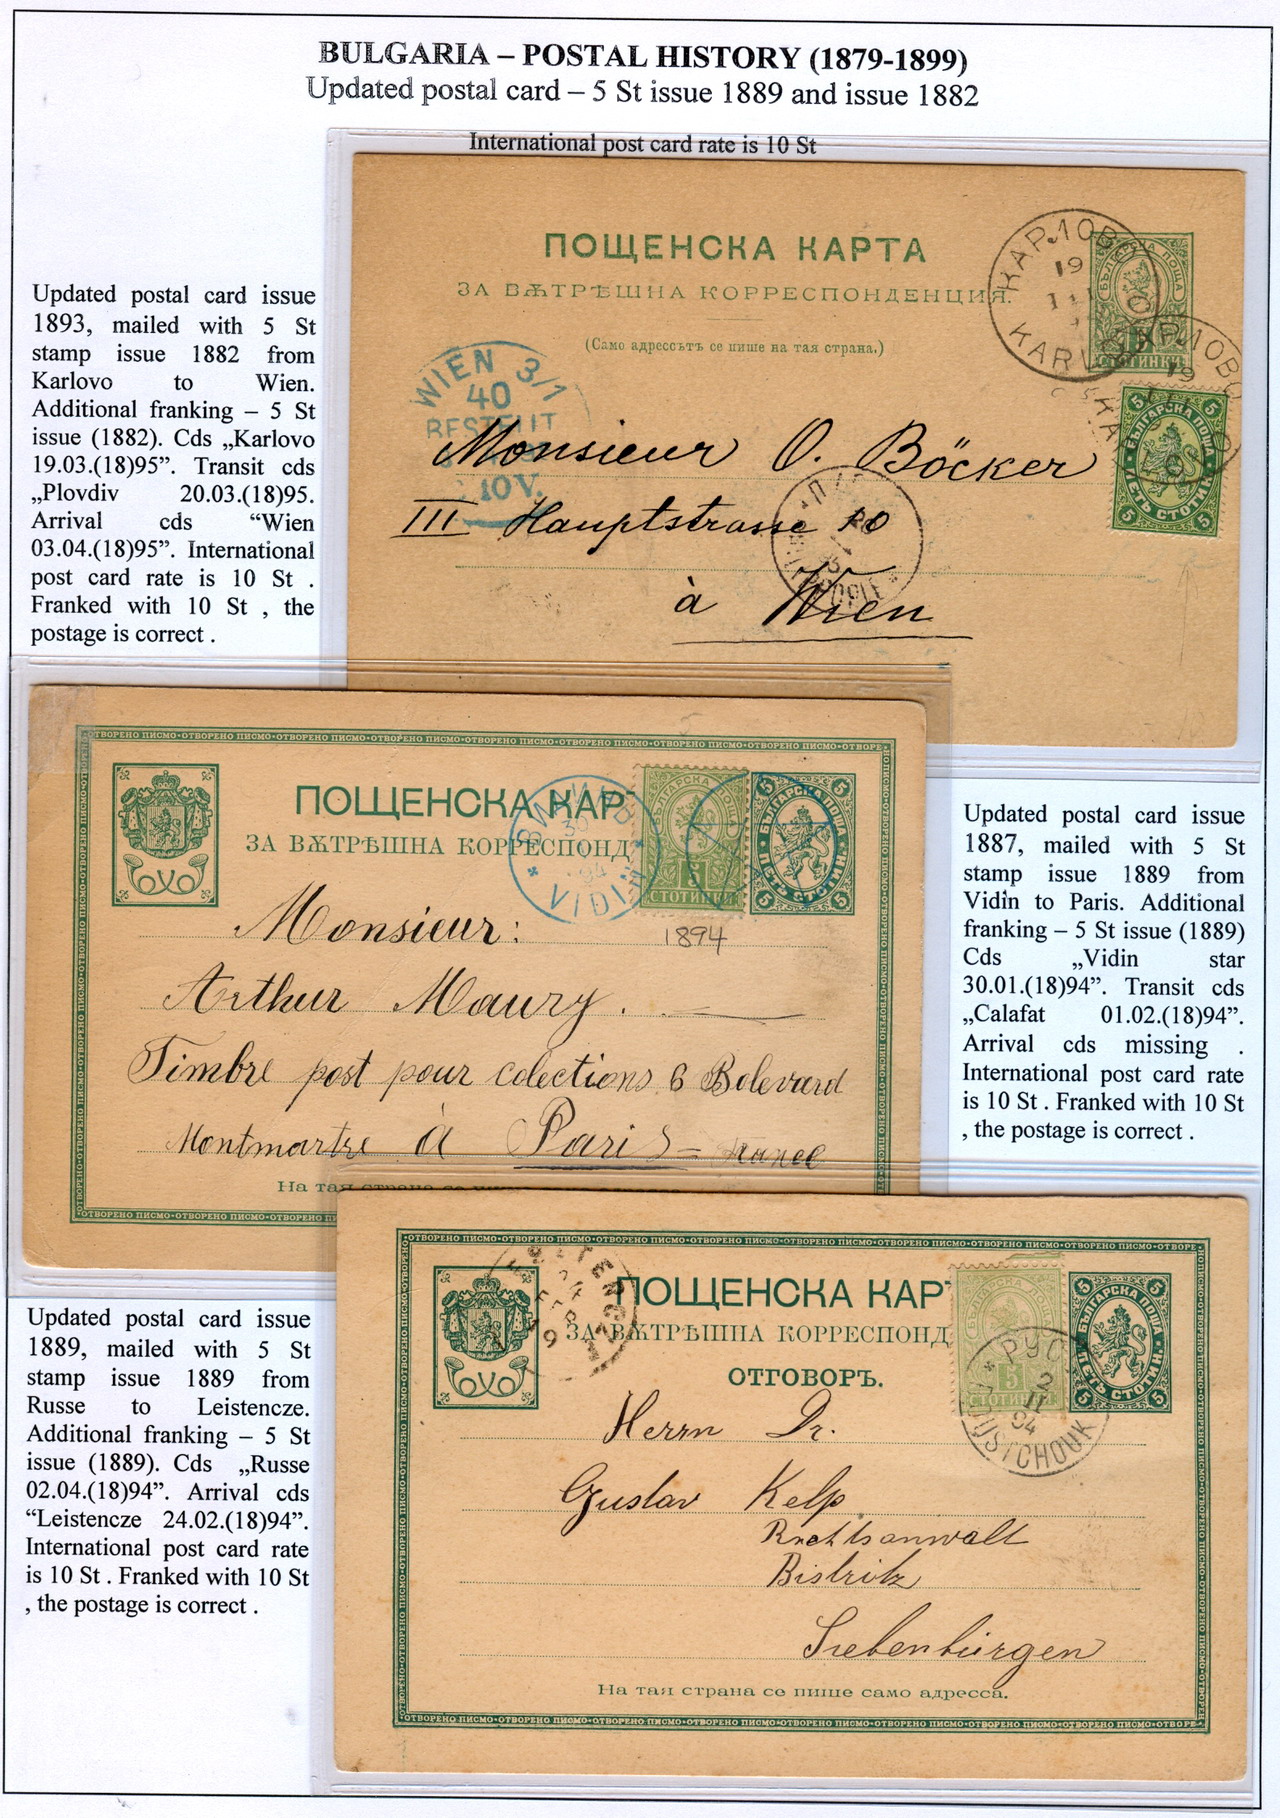 BULGARIA – POSTAL HISTORY (1879-1899)
Updated postal card – 5 St issue 1889 and issue 1882
International post card rate is 10 St
Updated postal card issue
1893, mailed with 5 St
stamp issue 1882 from
Karlovo to Wien.
Additional franking – 5 St
issue (1882). Cds „Karlovo
19.03.(18)95”. Transit cds
„Plovdiv 20.03.(18)95.
Arrival cds “Wien
03.04.(18)95”. International
post card rate is 10 St .
Franked with 10 St , the
postage is correct .
ПОЩЕНСКА КАРТА
ЗА ВѪТРѢШНА КОРРЕСПОНДЕНЦИЯ.
(Само адрессътъ се пише на тая страна.)
КАРЛОВО
19
KARLOVO
БЪЛГАРСКА ПОЩА
СТОТИНКИ
КАРЛОВО
19
5 5
БЪЛГАРСКА ПОЩА
ПЕТЬ СТОТИНКИ
5 5
WIEN 3/1
40
BESTELLT
10V.
Monsieur O. Böcker
III Hauptstrasse 10
à Wien
ОТВОРЕНО ПИСМО
ПОЩЕНСКА КАР
ЗА ВѪТРѢШНА КОРРЕСПОНД
ВИДИНЪ
30
94
VIDIN
БЪЛГАРСКА ПОЩА
5
СТОТИНКИ
5 5
БЪЛГАРСКА ПОЩА
ПЕТЬ СТОТИНКИ
5 5
1894
Monsieur:
Arthur Maury.
Timbre post pour colections 6 Bolevard
Montmartre à Paris – France
На тая страна се
Updated postal card issue
1887, mailed with 5 St
stamp issue 1889 from
Vidin to Paris. Additional
franking – 5 St issue (1889)
Cds „Vidin star
30.01.(18)94”. Transit cds
„Calafat 01.02.(18)94”.
Arrival cds missing .
International post card rate
is 10 St . Franked with 10 St
, the postage is correct .
Updated postal card issue
1889, mailed with 5 St
stamp issue 1889 from
Russe to Leistencze.
Additional franking – 5 St
issue (1889). Cds „Russe
02.04.(18)94”. Arrival cds
“Leistencze 24.02.(18)94”.
International post card rate
is 10 St . Franked with 10 St
, the postage is correct .
ОТВОРЕНО ПИСМО
ПОЩЕНСКА КАР
ЗА ВѪТРѢШНА КОРРЕСПОНД
ОТГОВОРЪ.
5
СТОТИНКИ
5 5
БЪЛГАРСКА ПОЩА
ПЕТЬ СТОТИНКИ
5 5
РУС
2
II
94
ROUSTCHOUK
Herrn Dr.
Gustav Kelp
Rechtsanwalt
Bistritz
Siebenbürgen
На тая страна се пише само адресса.